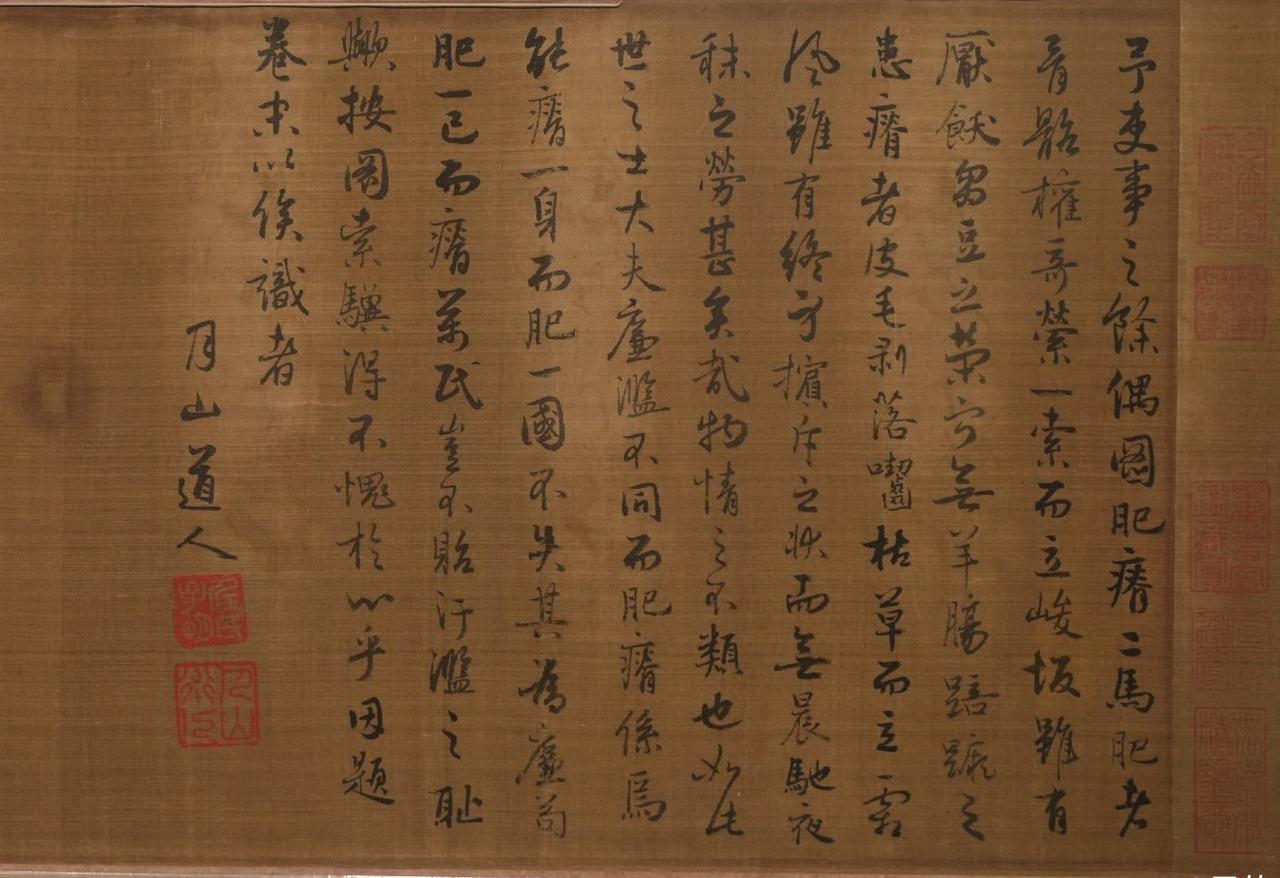 予吏事之餘偶圖肥瘠二馬肥者
骨骼權奇縈一索而立峻坂雖有
厭飫芻豆之榮寧無羊腸踣蹶之
患瘠者皮毛剝落囓枯草而立霜
風雖有終身擯斥之狀而無晨馳夜
秣之勞甚矣哉物情之不類也如此
世之士大夫廉濫不同而肥瘠係焉
能瘠一身而肥一國不失其為廉苟
肥一己而瘠萬民豈不貽汙濫之恥
歟按圖索驥得不愧於心乎因題
卷末以俟識者
月山道人
任氏子明